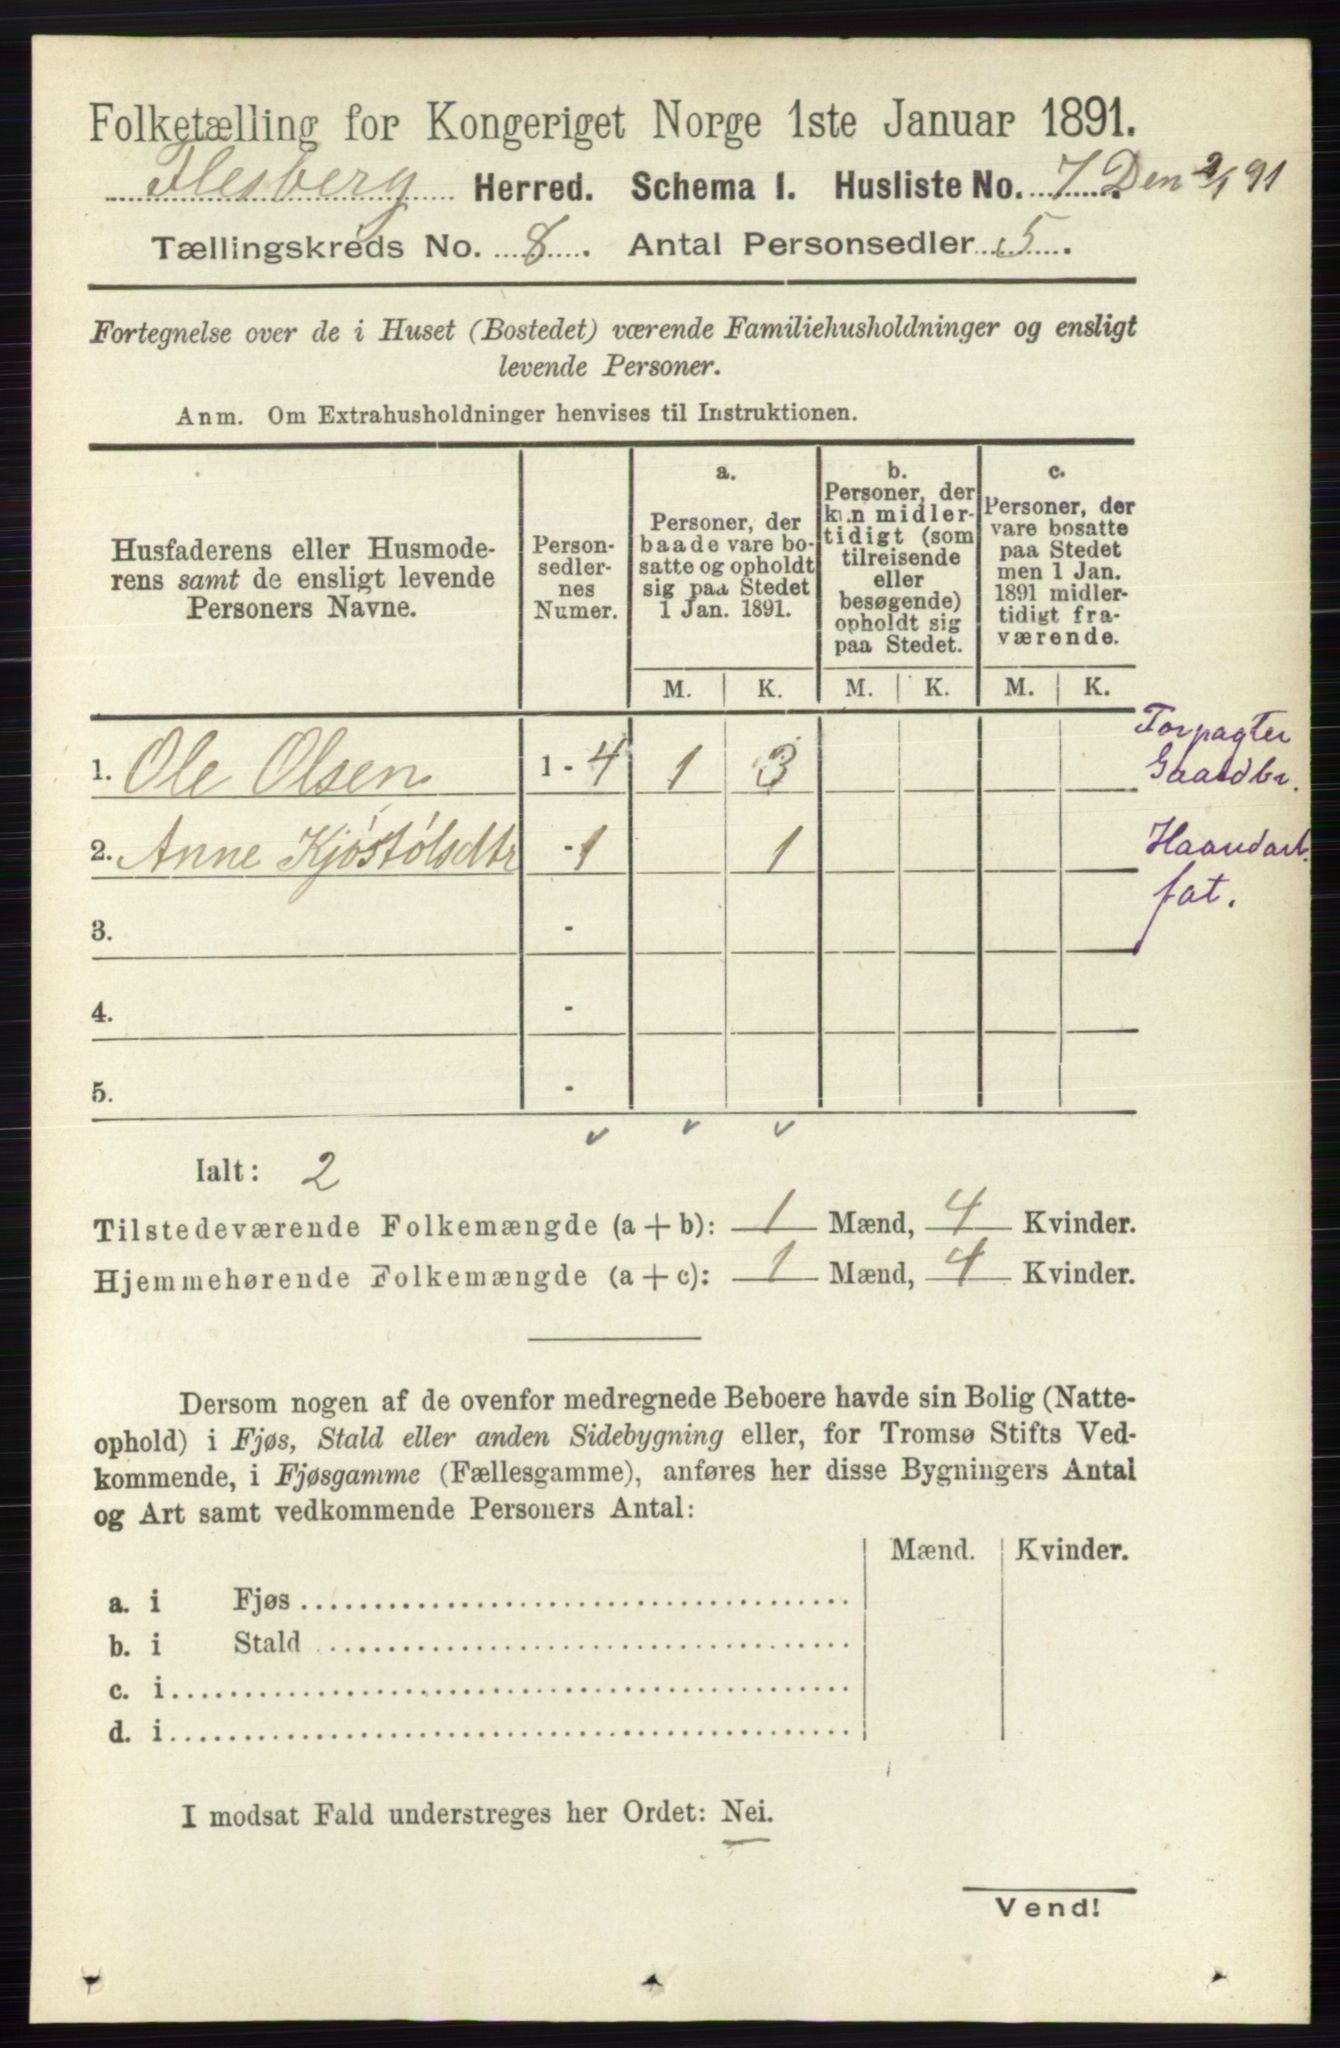 Folketælling for Kongeriget Norge 1ste Januar 1891.
Flesberg Herred. Schema 1. Husliste No. 7 Den 2/1 91
Tællingskreds No. 8. Antal Personsedler 5.
Fortegnelse over de i Huset (Bostedet) værende Familiehusholdninger og ensligt
levende Personer.
Anm. Om Extrahusholdninger henvises til Instruktionen.
Husfaderens eller Husmode-
rens samt de ensligt levende
Personers Navne.
Person-
sedler-
nes
Numer.
a.
Personer, der
baade vare bo-
satte og opholdt
sig paa Stedet
1 Jan. 1891.
b.
Personer, der
kun midler-
tidigt (som
tilreisende
eller
besøgende)
opholdt sig
paa Stedet.
c.
Personer, der
vare bosatte
paa Stedet
men 1 Jan.
1891 midler-
tidigt fra-
værende.
M. K. M. K. M. K.
1. Ole Olsen 1 - 4 1 3
Forpagter
Gaardbr.
2. Anne Kjøstølsdtr - 1 1
Haandarb.
fat.
3. -
4. -
5. -
Ialt: 2
Tilstedeværende Folkemængde (a + b): 1 Mænd, 4 Kvinder.
Hjemmehørende Folkemængde (a + c): 1 Mænd, 4 Kvinder.
Dersom nogen af de ovenfor medregnede Beboere havde sin Bolig (Natte-
ophold) i Fjøs, Stald eller anden Sidebygning eller, for Tromsø Stifts Ved-
kommende, i Fjøsgamme (Fællesgamme), anføres her disse Bygningers Antal
og Art samt vedkommende Personers Antal:
Mænd. Kvinder.
a. i Fjøs
b. i Stald
c. i
d. i
I modsat Fald understreges her Ordet: Nei.
Vend!